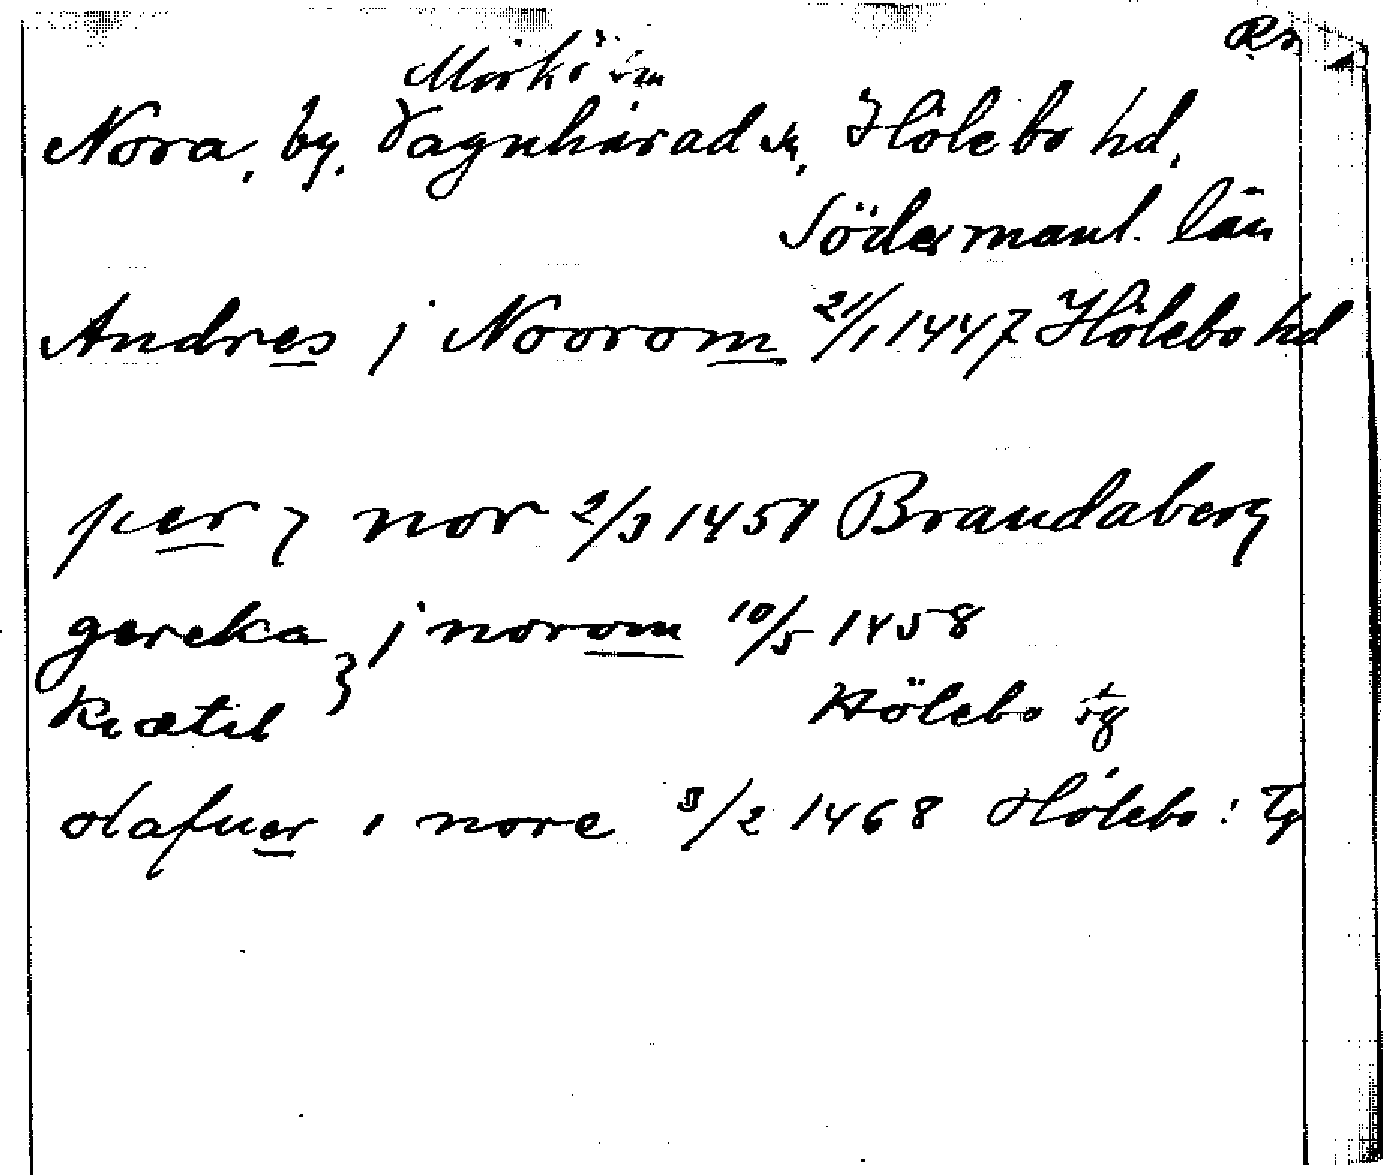 Mörkö sn
Nora, by, Vagnhärad sn, Hölebo hd,
Södermanl. län
Andres j Noorom 21/1 1447 Hölebo hd
per j nor 2/3 1451 Brandaberg
gereka } j norom 10/5 1458
kætil Hölebo tg
olafuer i nore 3/2 1468 Hölebo tg